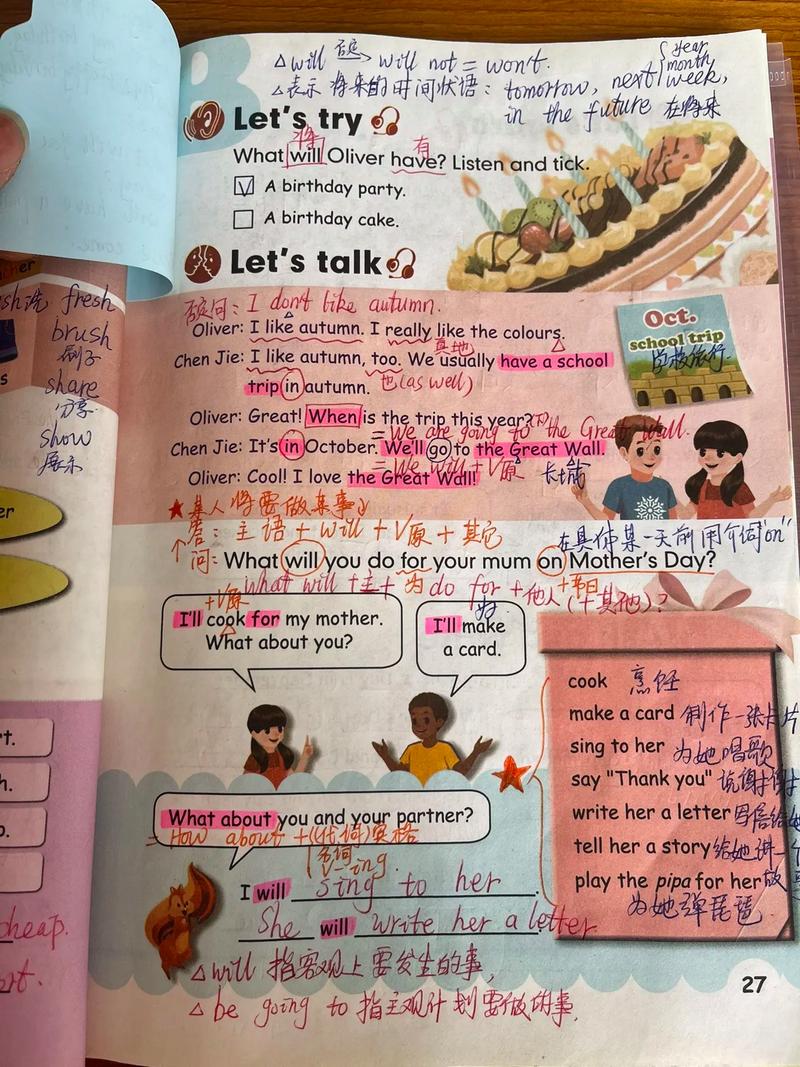 △will 否定→ will not = won't.
△表示将来的时间状语: tomorrow, next { year, month, week,
in the future 在将来
B
Let's try
将 有
What will Oliver have? Listen and tick.
V A birthday party.
A birthday cake.
Let's talk
否定句: I don't like autumn.
Oliver: I like autumn. I really like the colours.
真地
Chen Jie: I like autumn, too. We usually have a school
trip in autumn. 也(as well)
Oct.
school trip
学校旅行
Oliver: Great! When is the trip this year?
= We are going to the Great Wall.
Chen Jie: It's in October. We'll go to the Great Wall.
= We will + V原
Oliver: Cool! I love the Great Wall! 长城
★某人将要做某事
答: 主语 + will + V原 + 其它
在具体某一天前用介词"on"
问: What will you do for your mum on Mother's Day?
what will + 主 + do for + 他人 (+其他)?
为 +节日
+V原
I'll cook for my mother.
What about you?
I'll make
a card.
为
cook 烹饪
make a card 制作一张卡片
sing to her 为她唱歌
say "Thank you" 说谢谢
write her a letter 写信给她
tell her a story 给她讲一个
play the pipa for her
为她弹琵琶
What about you and your partner?
= How about + (代词)宾格
名词
V-ing
I will sing to her.
She will write her a letter
△will 指客观上要发生的事,
△be going to 指主观计划要做的事.
27
sh 洗 fresh
brush
刷子
share
分享
show
展示
er
t.
h.
p.
cheap.